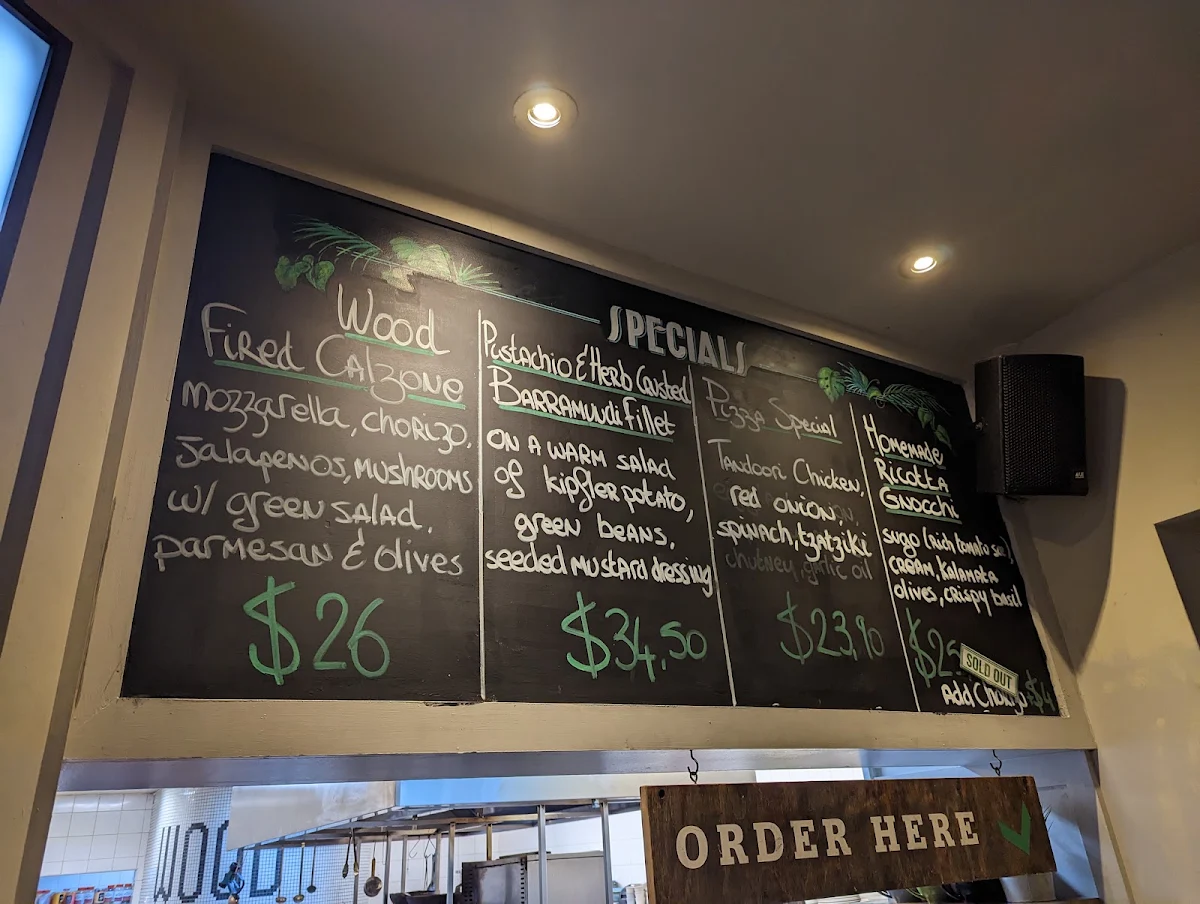 SPECIALS
Wood
Fired Calzone
mozzarella, chorizo,
Jalapenos, mushrooms
w/ green salad,
parmesan & olives
$26
Pistachio & Herb Crusted
Barramundi fillet
on a warm salad
of kipfler potato,
green beans,
seeded mustard dressing
$34.50
Pizza Special
Tandoori Chicken,
red onion,
spinach, tzatziki
chutney, garlic oil
$23.90
Homemade
Ricotta
Gnocchi
sugo (rich tomato
cream, kalamata
olives, crispy basil
SOLD OUT
Add
$4
ORDER HERE
WOOD